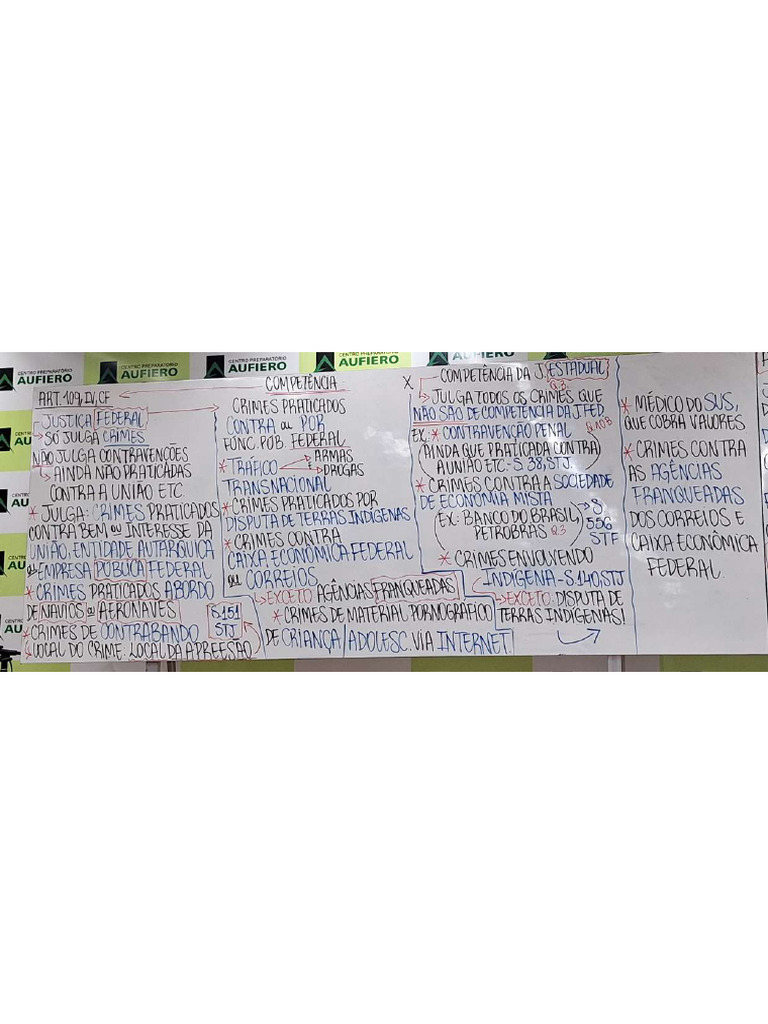 CENTRO PREPARATÓRIO
AUFIERO
CENTRO PREPARATÓRIO
AUFIERO
CENTRO PREPARATÓRIO
AUFIERO
COMPETÊNCIA
ART. 109, IV, CF
JUSTIÇA FEDERAL
SÓ JULGA CRIMES
NÃO JULGA CONTRAVENÇÕES
AINDA NÃO PRATICADAS
CONTRA A UNIÃO ETC
* JULGA: CRIMES PRATICADOS
CONTRA BEM ou INTERESSE DA
UNIÃO, ENTIDADE AUTÁRQUICA
ou EMPRESA PÚBLICA FEDERAL
* CRIMES PRATICADOS ABORDO
DE NAVIOS ou AERONAVES
* CRIMES DE CONTRABANDO
LOCAL DO CRIME: LOCAL DA APREESÃO
S.151
STJ
CRIMES PRATICADOS
CONTRA ou POR
FUNC. PÚB. FEDERAL
* TRÁFICO
ARMAS
DROGAS
TRANSNACIONAL
* CRIMES PRATICADOS POR
DISPUTA DE TERRAS INDÍGENAS
* CRIMES CONTRA
CAIXA ECONÔMICA FEDERAL
ou CORREIOS
EXCETO AGÊNCIAS FRANQUEADAS
* CRIMES DE MATERIAL PORNOGRÁFICO
DE CRIANÇA/ADOLESC. VIA INTERNET.
X
COMPETÊNCIA DA J.ESTADUAL
Q.3
JULGA TODOS OS CRIMES QUE
NÃO SÃO DE COMPETÊNCIA DA J.FED.
EX: * CONTRAVENÇÃO PENAL
AINDA QUE PRATICADA CONTRA
A UNIÃO ETC - S.38, STJ.
* CRIMES CONTRA A SOCIEDADE
DE ECONOMIA MISTA
EX: BANCO DO BRASIL,
PETROBRAS Q.3
S.
556
STF
* CRIMES ENVOLVENDO
INDÍGENA - S.140, STJ
EXCETO: DISPUTA DE
TERRAS INDÍGENAS!
* MÉDICO DO SUS,
QUE COBRA VALORES
* CRIMES CONTRA
AS AGÊNCIAS
FRANQUEADAS
DOS CORREIOS E
CAIXA ECONÔMICA
FEDERAL.